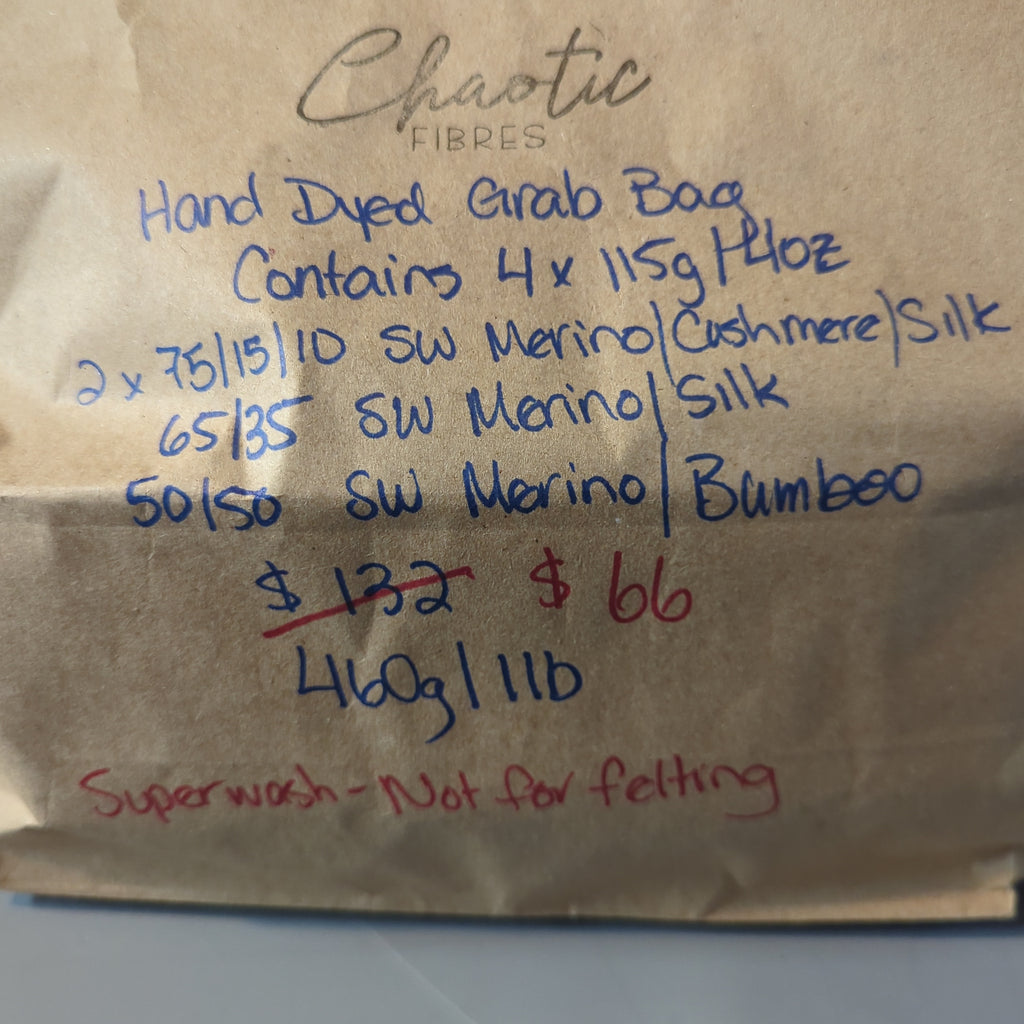 Chaotic
FIBRES
Hand Dyed Grab Bag
Contains 4 x 115g/4oz
2 x 75/15/10 SW Merino/Cashmere/Silk
65/35 SW Merino/Silk
50/50 SW Merino/Bamboo
$132 $66
460g/1lb
Superwash - Not for felting